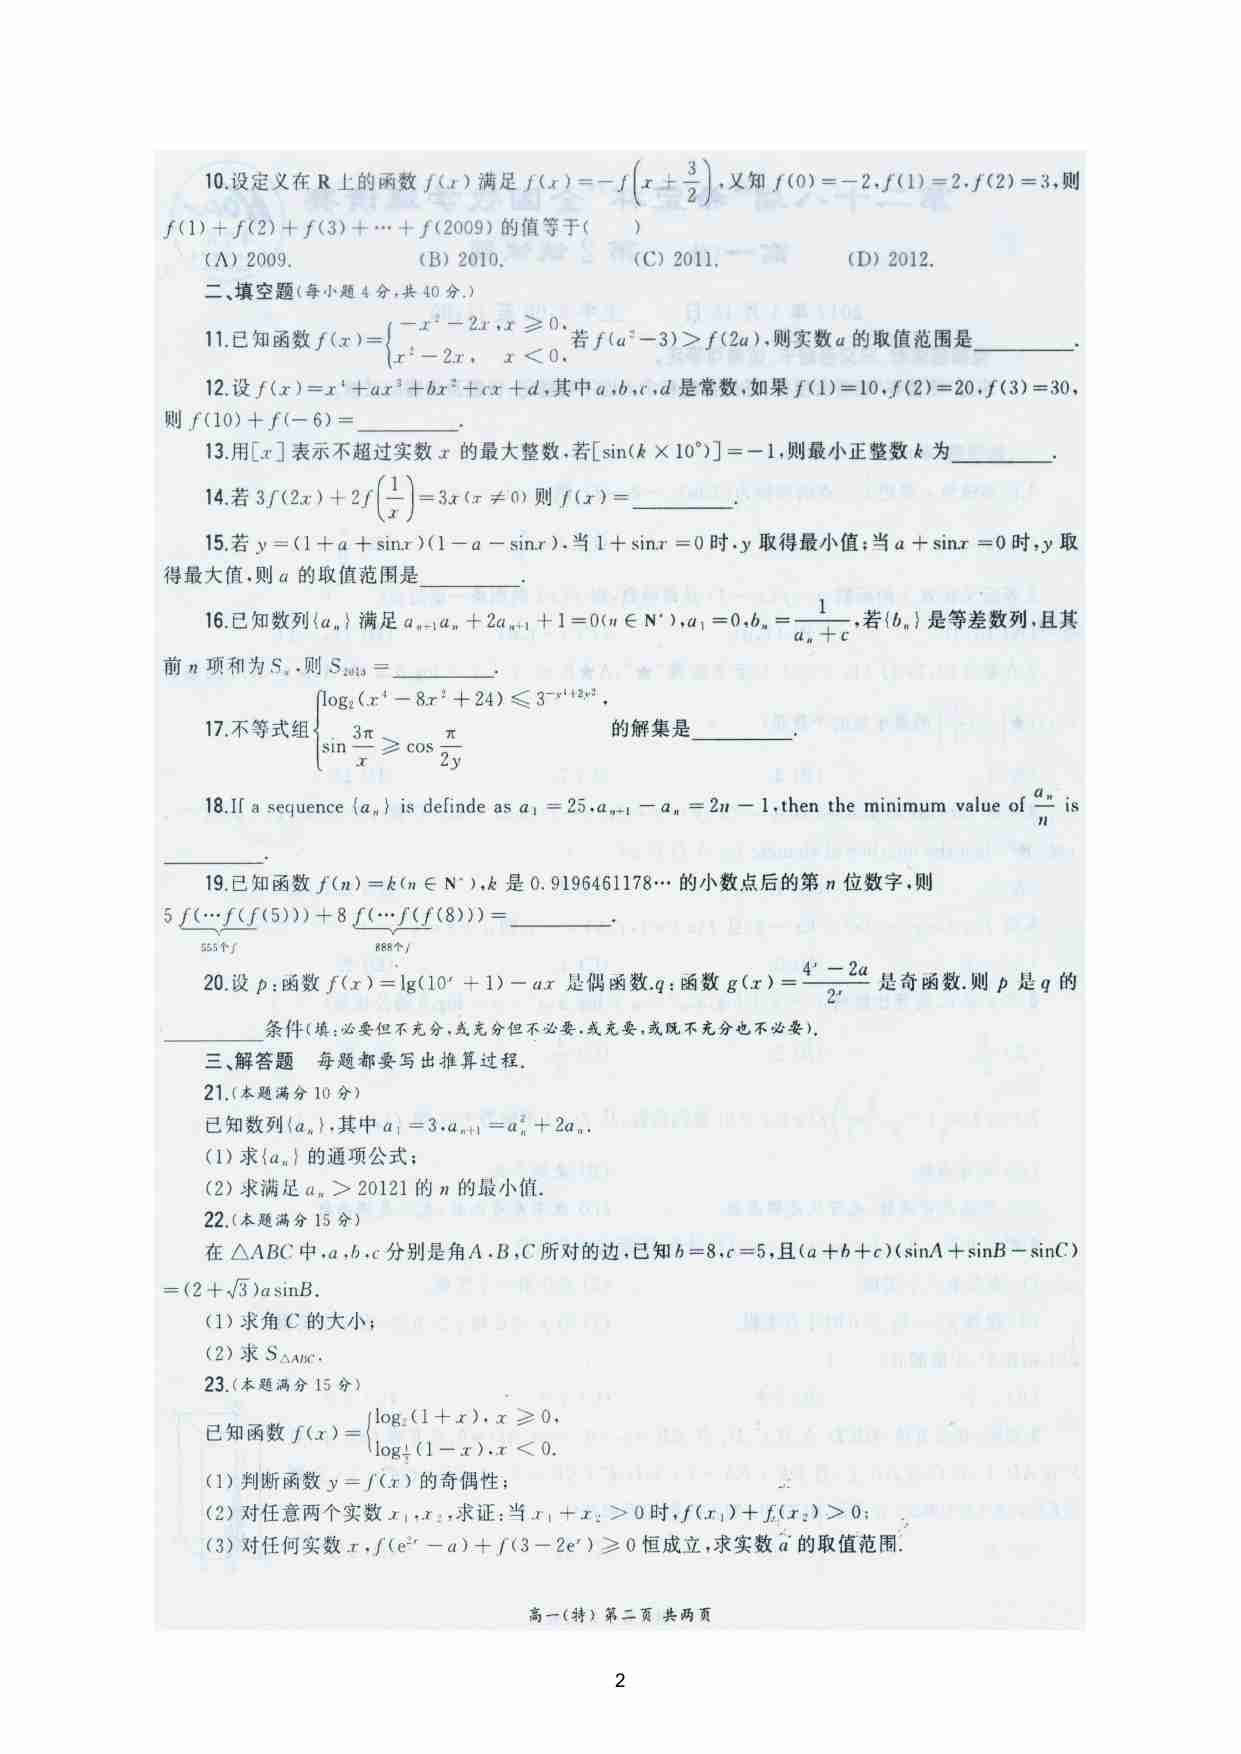 10.设定义在 R 上的函数 f(x) 满足 f(x)=-f(x+3/2),又知 f(0)=-2,f(1)=2,f(2)=3,则
f(1)+f(2)+f(3)+…+f(2009) 的值等于(  )
(A) 2009. (B) 2010. (C) 2011. (D) 2012.
二、填空题(每小题 4 分,共 40 分.)
11.已知函数 f(x)={-x²-2x,x≥0, x²-2x, x<0, 若 f(a²-3)>f(2a),则实数 a 的取值范围是________.
12.设 f(x)=x⁴+ax³+bx²+cx+d,其中 a,b,c,d 是常数,如果 f(1)=10,f(2)=20,f(3)=30,
则 f(10)+f(-6)=________.
13.用[x]表示不超过实数 x 的最大整数,若[sin(k×10°)]=-1,则最小正整数 k 为________.
14.若 3f(2x)+2f(1/x)=3x(x≠0) 则 f(x)=________.
15.若 y=(1+a+sinx)(1-a-sinx),当 1+sinx=0 时,y 取得最小值;当 a+sinx=0 时,y 取
得最大值,则 a 的取值范围是________.
16.已知数列{aₙ}满足 aₙ₊₁aₙ+2aₙ₊₁+1=0(n∈N*),a₁=0,bₙ=1/(aₙ+c),若{bₙ}是等差数列,且其
前 n 项和为 Sₙ,则 S₂₀₁₃=________.
17.不等式组{log₂(x⁴-8x²+24)≤3^(-y⁴+2y²), sin 3π/x ≥ cos π/2y 的解集是________.
18.If a sequence {aₙ} is definde as a₁=25,aₙ₊₁-aₙ=2n-1,then the minimum value of aₙ/n is
________.
19.已知函数 f(n)=k(n∈N*),k 是 0.9196461178… 的小数点后的第 n 位数字,则
5 f(…f(f(5)))+8 f(…f(f(8)))=________.
555个f 888个f
20.设 p:函数 f(x)=lg(10ˣ+1)-ax 是偶函数.q:函数 g(x)=(4ˣ-2a)/2ˣ 是奇函数.则 p 是 q 的
________条件(填:必要但不充分,或充分但不必要,或充要,或既不充分也不必要).
三、解答题 每题都要写出推算过程.
21.(本题满分 10 分)
已知数列{aₙ},其中 a₁=3,aₙ₊₁=aₙ²+2aₙ.
(1) 求{aₙ}的通项公式;
(2) 求满足 aₙ>20121 的 n 的最小值.
22.(本题满分 15 分)
在 △ABC 中,a,b,c 分别是角 A,B,C 所对的边,已知 b=8,c=5,且(a+b+c)(sinA+sinB-sinC)
=(2+√3)a sinB.
(1) 求角 C 的大小;
(2) 求 S△ABC.
23.(本题满分 15 分)
已知函数 f(x)={log₂(1+x), x≥0, log_{1/2}(1-x),x<0.
(1) 判断函数 y=f(x) 的奇偶性;
(2) 对任意两个实数 x₁,x₂,求证:当 x₁+x₂>0 时,f(x₁)+f(x₂)>0;
(3) 对任何实数 x,f(e²ˣ-a)+f(3-2eˣ)≥0 恒成立,求实数 a 的取值范围.
高一(特) 第二页 共两页
2